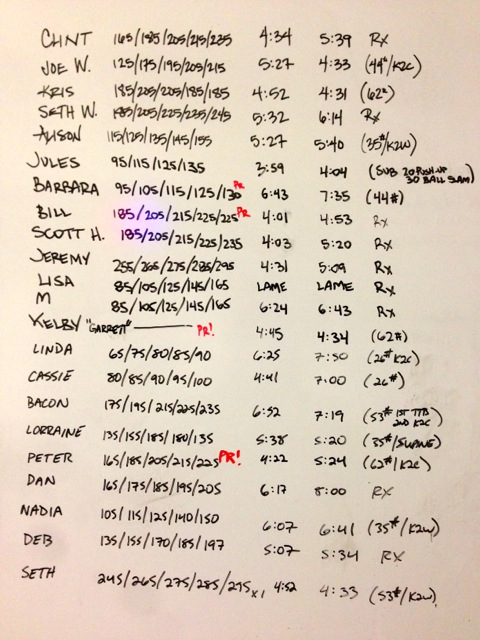 CLINT 165/185/205/215/225 4:34 5:39 RX
JOE W. 125/175/195/205/215 5:27 4:33 (44#/K2C)
KRIS 185/205/205/185/185 4:52 4:31 (62#)
SETH W. 185/205/225/235/245 5:32 6:14 RX
ALISON 115/125/135/145/155 5:27 5:40 (35#/K2W)
JULES 95/115/125/135 3:59 4:04 (SUB 20 PUSH-UP 30 BALL SLAM)
BARBARA 95/105/115/125/130 PR 6:43 7:35 (44#)
BILL 185/205/215/225/225 PR 4:01 4:53 RX
SCOTT H. 185/205/215/225/235 4:03 5:20 RX
JEREMY 255/265/275/285/295 4:31 5:09 RX
LISA 85/105/125/145/165 LAME LAME RX
M 85/105/125/145/165 6:24 6:43 RX
KELBY "GARRETT" PR! 4:45 4:34 (62#)
LINDA 65/75/80/85/90 6:25 7:50 (26# K2C)
CASSIE 80/85/90/95/100 4:41 7:00 (26#)
BACON 175/195/215/225/235 6:52 7:19 (53# 1ST TTB 2ND K2C)
LORRAINE 135/155/185/180/135 5:38 5:20 (35#/
PETER 165/185/205/215/225 PR! 4:22 5:24 (62#/K2C)
DAN 165/175/185/195/205 6:17 8:00 RX
NADIA 105/115/125/140/150 6:07 6:41 (35#/K2W)
DEB 135/155/170/185/197 5:07 5:34 RX
SETH 245/265/275/285/295 x1 4:52 4:33 (53#/K2W)